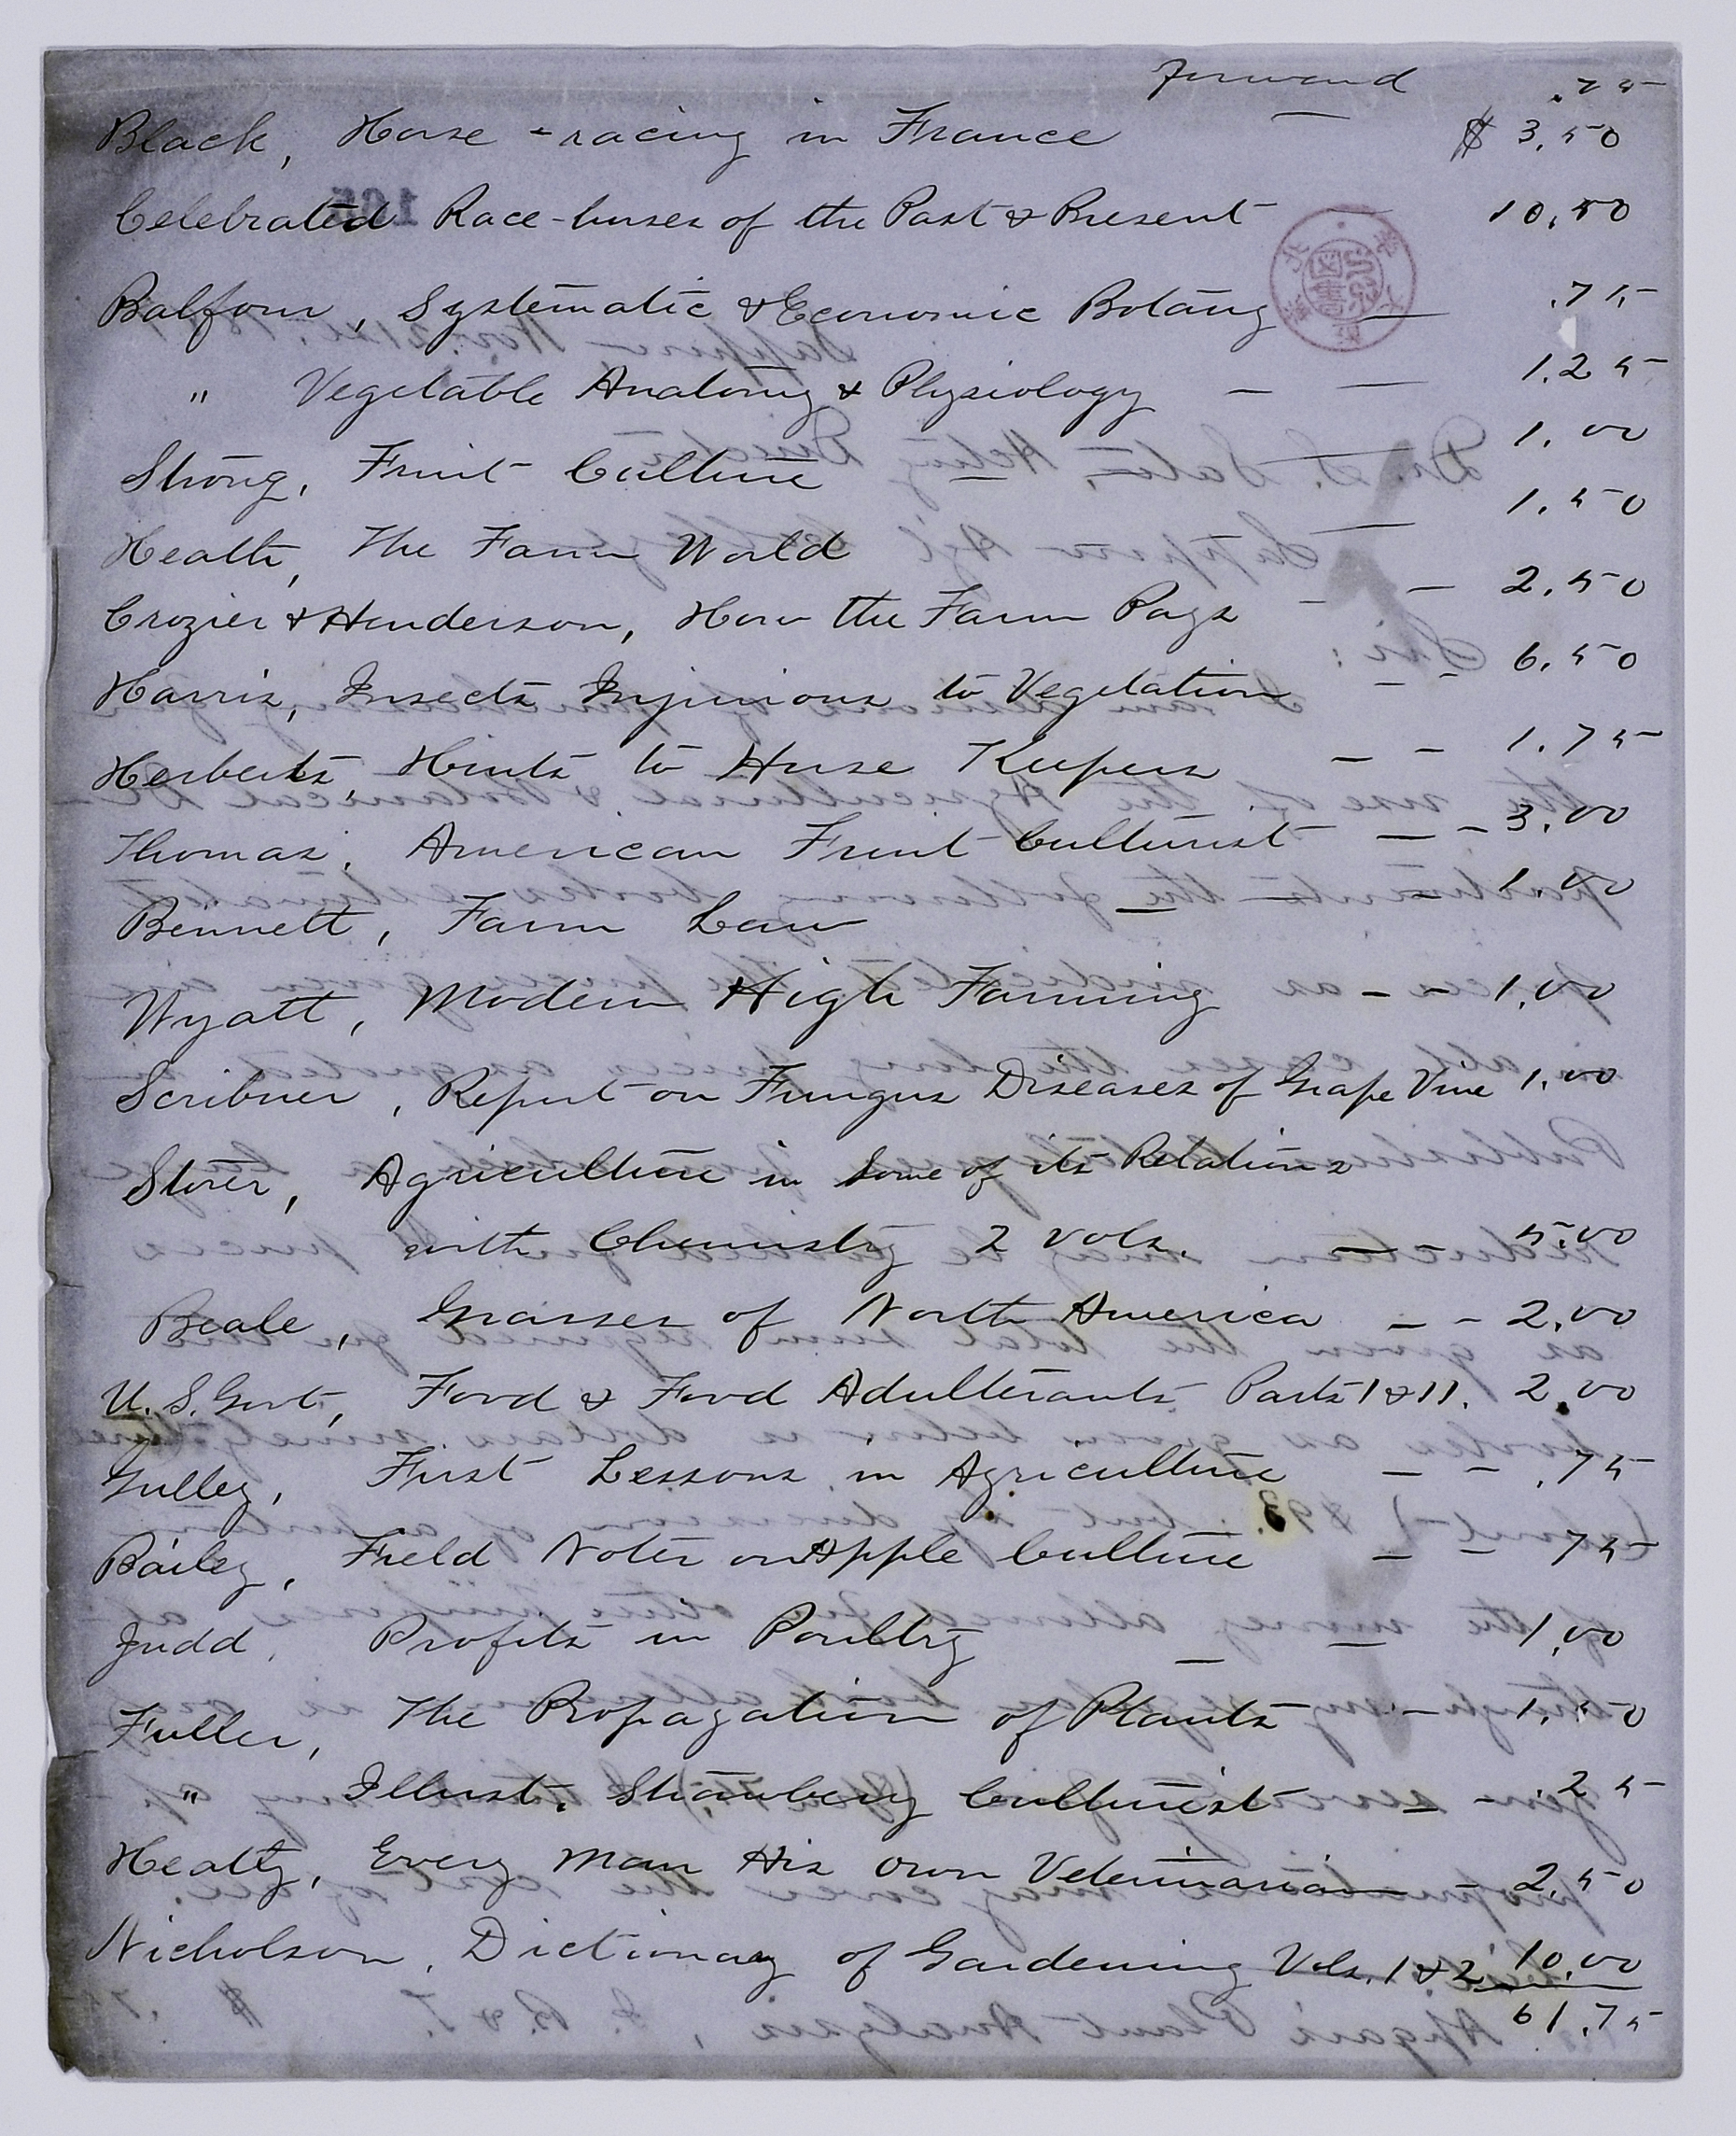 forward .75
Black, Horse-racing in France — $ 3.50
Celebrated Race-horses of the Past & Present — 10.50
Balfour, Systematic & Economic Botany — .75
" Vegetable Anatomy & Physiology — — 1.25
Strong, Fruit Culture — — 1.00
Heath, The Farm World — 1.50
Crozier & Henderson, How the Farm Pays - — 2.50
Harris, Insects Injurious to Vegetation — - 6.50
Herberts, Hints to Horse Keepers — - 1.75
Thomas, American Fruit Culturist — - 3.00
Bennett, Farm Law — — - 1.00
Wyatt, Modern High Farming — - 1.00
Scribner, Report on Fungus Diseases of Grape Vine 1.00
Storer, Agriculture in Some of its Relations
with Chemistry 2 vols. — - 5.00
Beale, Grasses of North America — - 2.00
U. S. Govt, Food & Food Adulterants Parts 1 & 11. 2.00
Gulley, First Lessons in Agriculture — - .75
Bailey, Field Notes on Apple Culture - - 75
Judd, Profits in Poultry — — 1.00
Fuller, The Propagation of Plants - — 1.50
" Illust. Strawberry Culturist — - .25
Heatly, Every Man His Own Veterinarian - 2.50
Nicholson, Dictionary of Gardening Vols. 1 & 2 10.00
61.75